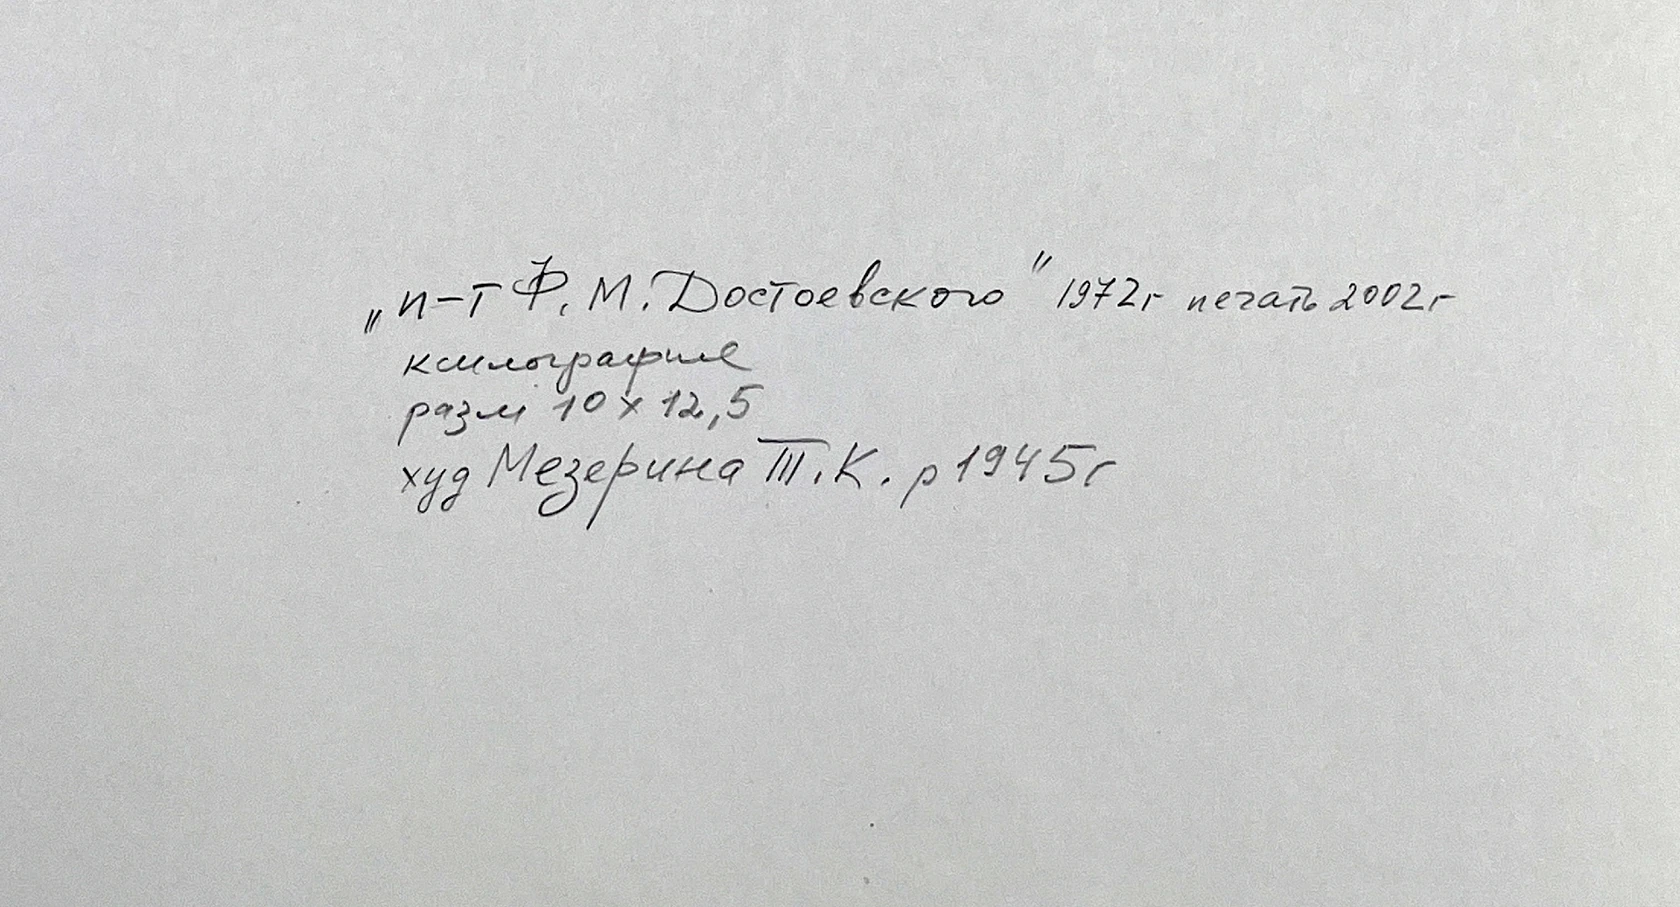 „п-т Ф. М. Достоевского" 1972г печать 2002г
ксилография
разм 10 х 12,5
худ Мезерина Т. К. р 1945г